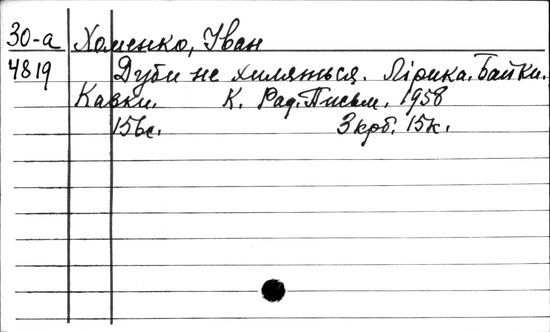 30-а Хоменко, Іван
4819 Дуби не хиляться. Лірика. Байки.
Казки. К. Рад. Письм. 1958
156с. 3 крб. 15к.